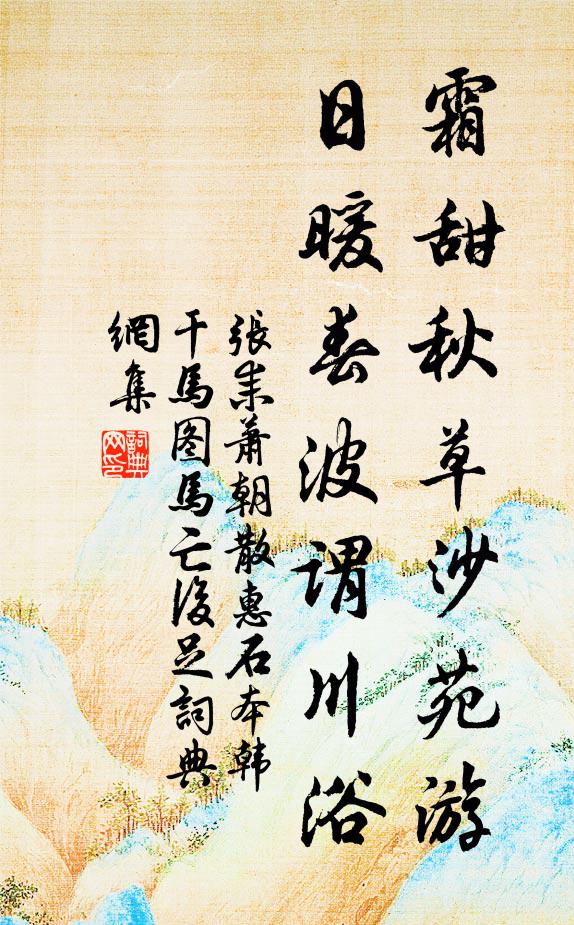 霜甜秋草沙苑游
日暖春波谓川浴
張耒萧朝散惠石本韩
干馬图馬亡後足詞典
網集
詞典
网印